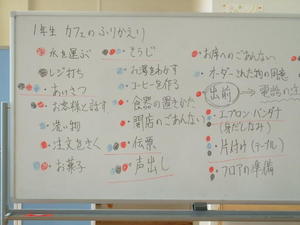 1年生 カフェのふりかえり
水を運ぶ
レジ打ち
あいさつ
お客様と話す
洗い物
注文をきく
お菓子
そうじ
お湯をわかす
コーヒーを作る
食器の置きかた
開店のごあんない
伝票
声出し
お席へのごあんない
オーダーされた物の用意
出前 → 電話の
エプロン・バンダナ
(身だしなみ)
片付け(テーブル)
フロアの準備